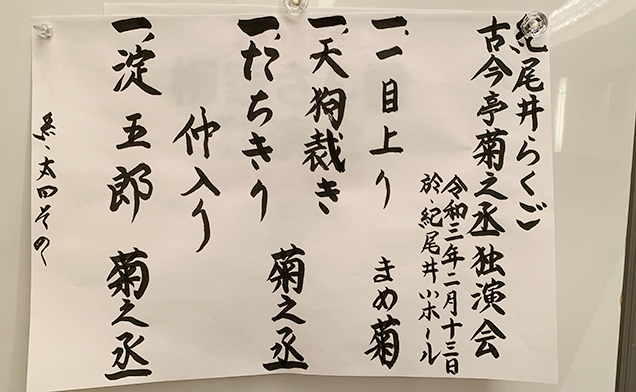 紀尾井らくご
古今亭菊之丞独演会
令和三年二月十三日
於、紀尾井小ホール
一、一目上り まめ菊
一、天狗裁き
一、たちきり 菊之丞
仲入り
一、淀五郎 菊之丞
糸、太田その